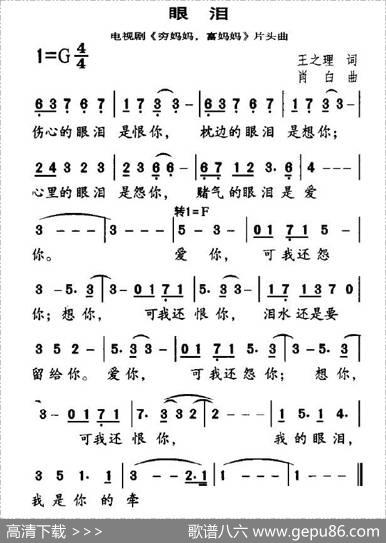 眼 泪
电视剧《穷妈妈，富妈妈》片头曲
1=G 4/4
王之理 词
肖 白 曲
6 3 7 6 7 | 1 7 3 3 - | 6 3 7 6 7 | 1 7 3 3 - |
伤心的眼泪 是恨你， 枕边的眼泪 是想你；
2 4 3 2 3 | 2 2 3 6 6 - | 6 7 1 2 3. 6 | 4 - - - |
心里的眼泪 是怨你， 赌气的眼泪 是 爱
转1=F
3 - - - | 3 - - - | 5 - 3 - | 0 1 7 1 5 5 |
你。 爱 你， 可我还怨
3 - 5. 3 | 3 - 0 1 7 1 | 5. 5 3 - | 1 7 1 3 7 0 |
你；想 你， 可我还 恨 你， 泪水还是要
3 5 2 - | 5. 3 3 - | 0 1 7 1 5. 5 | 3 - 5. 3 |
留给你。 爱 你， 可我还怨你； 想 你，
3 - 0 1 7 1 | 7. 3 3 2 | 2 - - - | 1 5 4. 1 |
可我还 恨 你， 我的眼泪，
3 5 1. 1 | 3 - - - | 3 - 2. 1 | 1 - - - ‖
我 是 你 的 牵
高清下载 >>>
歌谱八六 www.gepu86.com